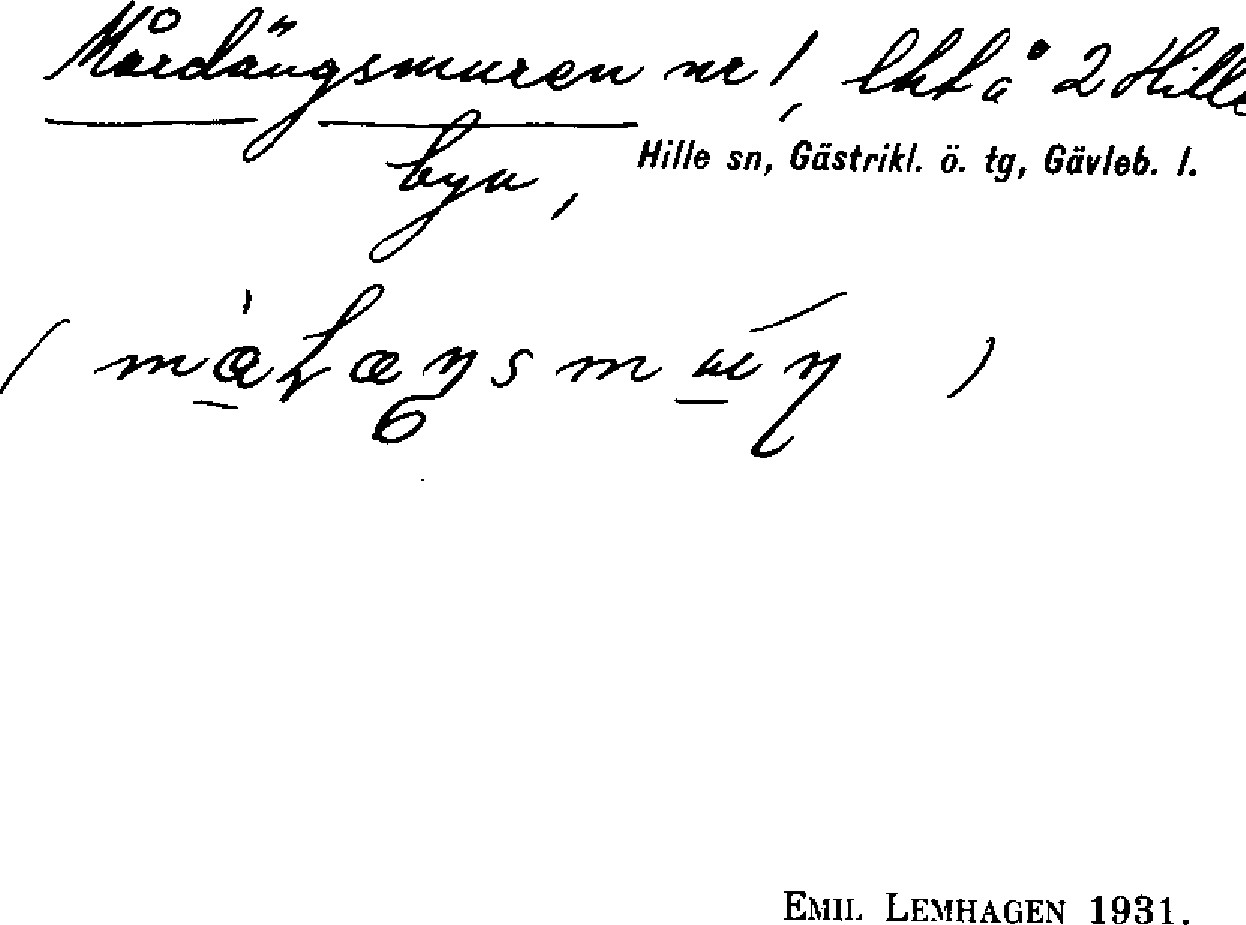 Mårdängsmuren nr 1, 2 Hille
byn,
Hille sn, Gästrikl. ö. tg, Gävleb. l.
EMIL LEMHAGEN 1931.